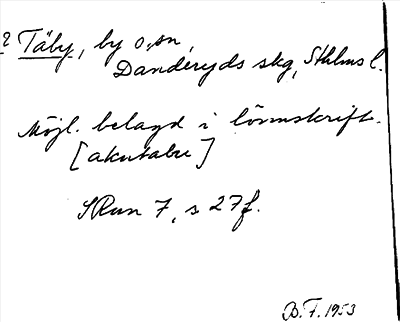 ? Täby, by o. sn,
Danderyds skg, Sthlms l.
Möjl. belagd i lönnskrift.
[akutabu]
SRun 7, s 27f.
B.F. 1953